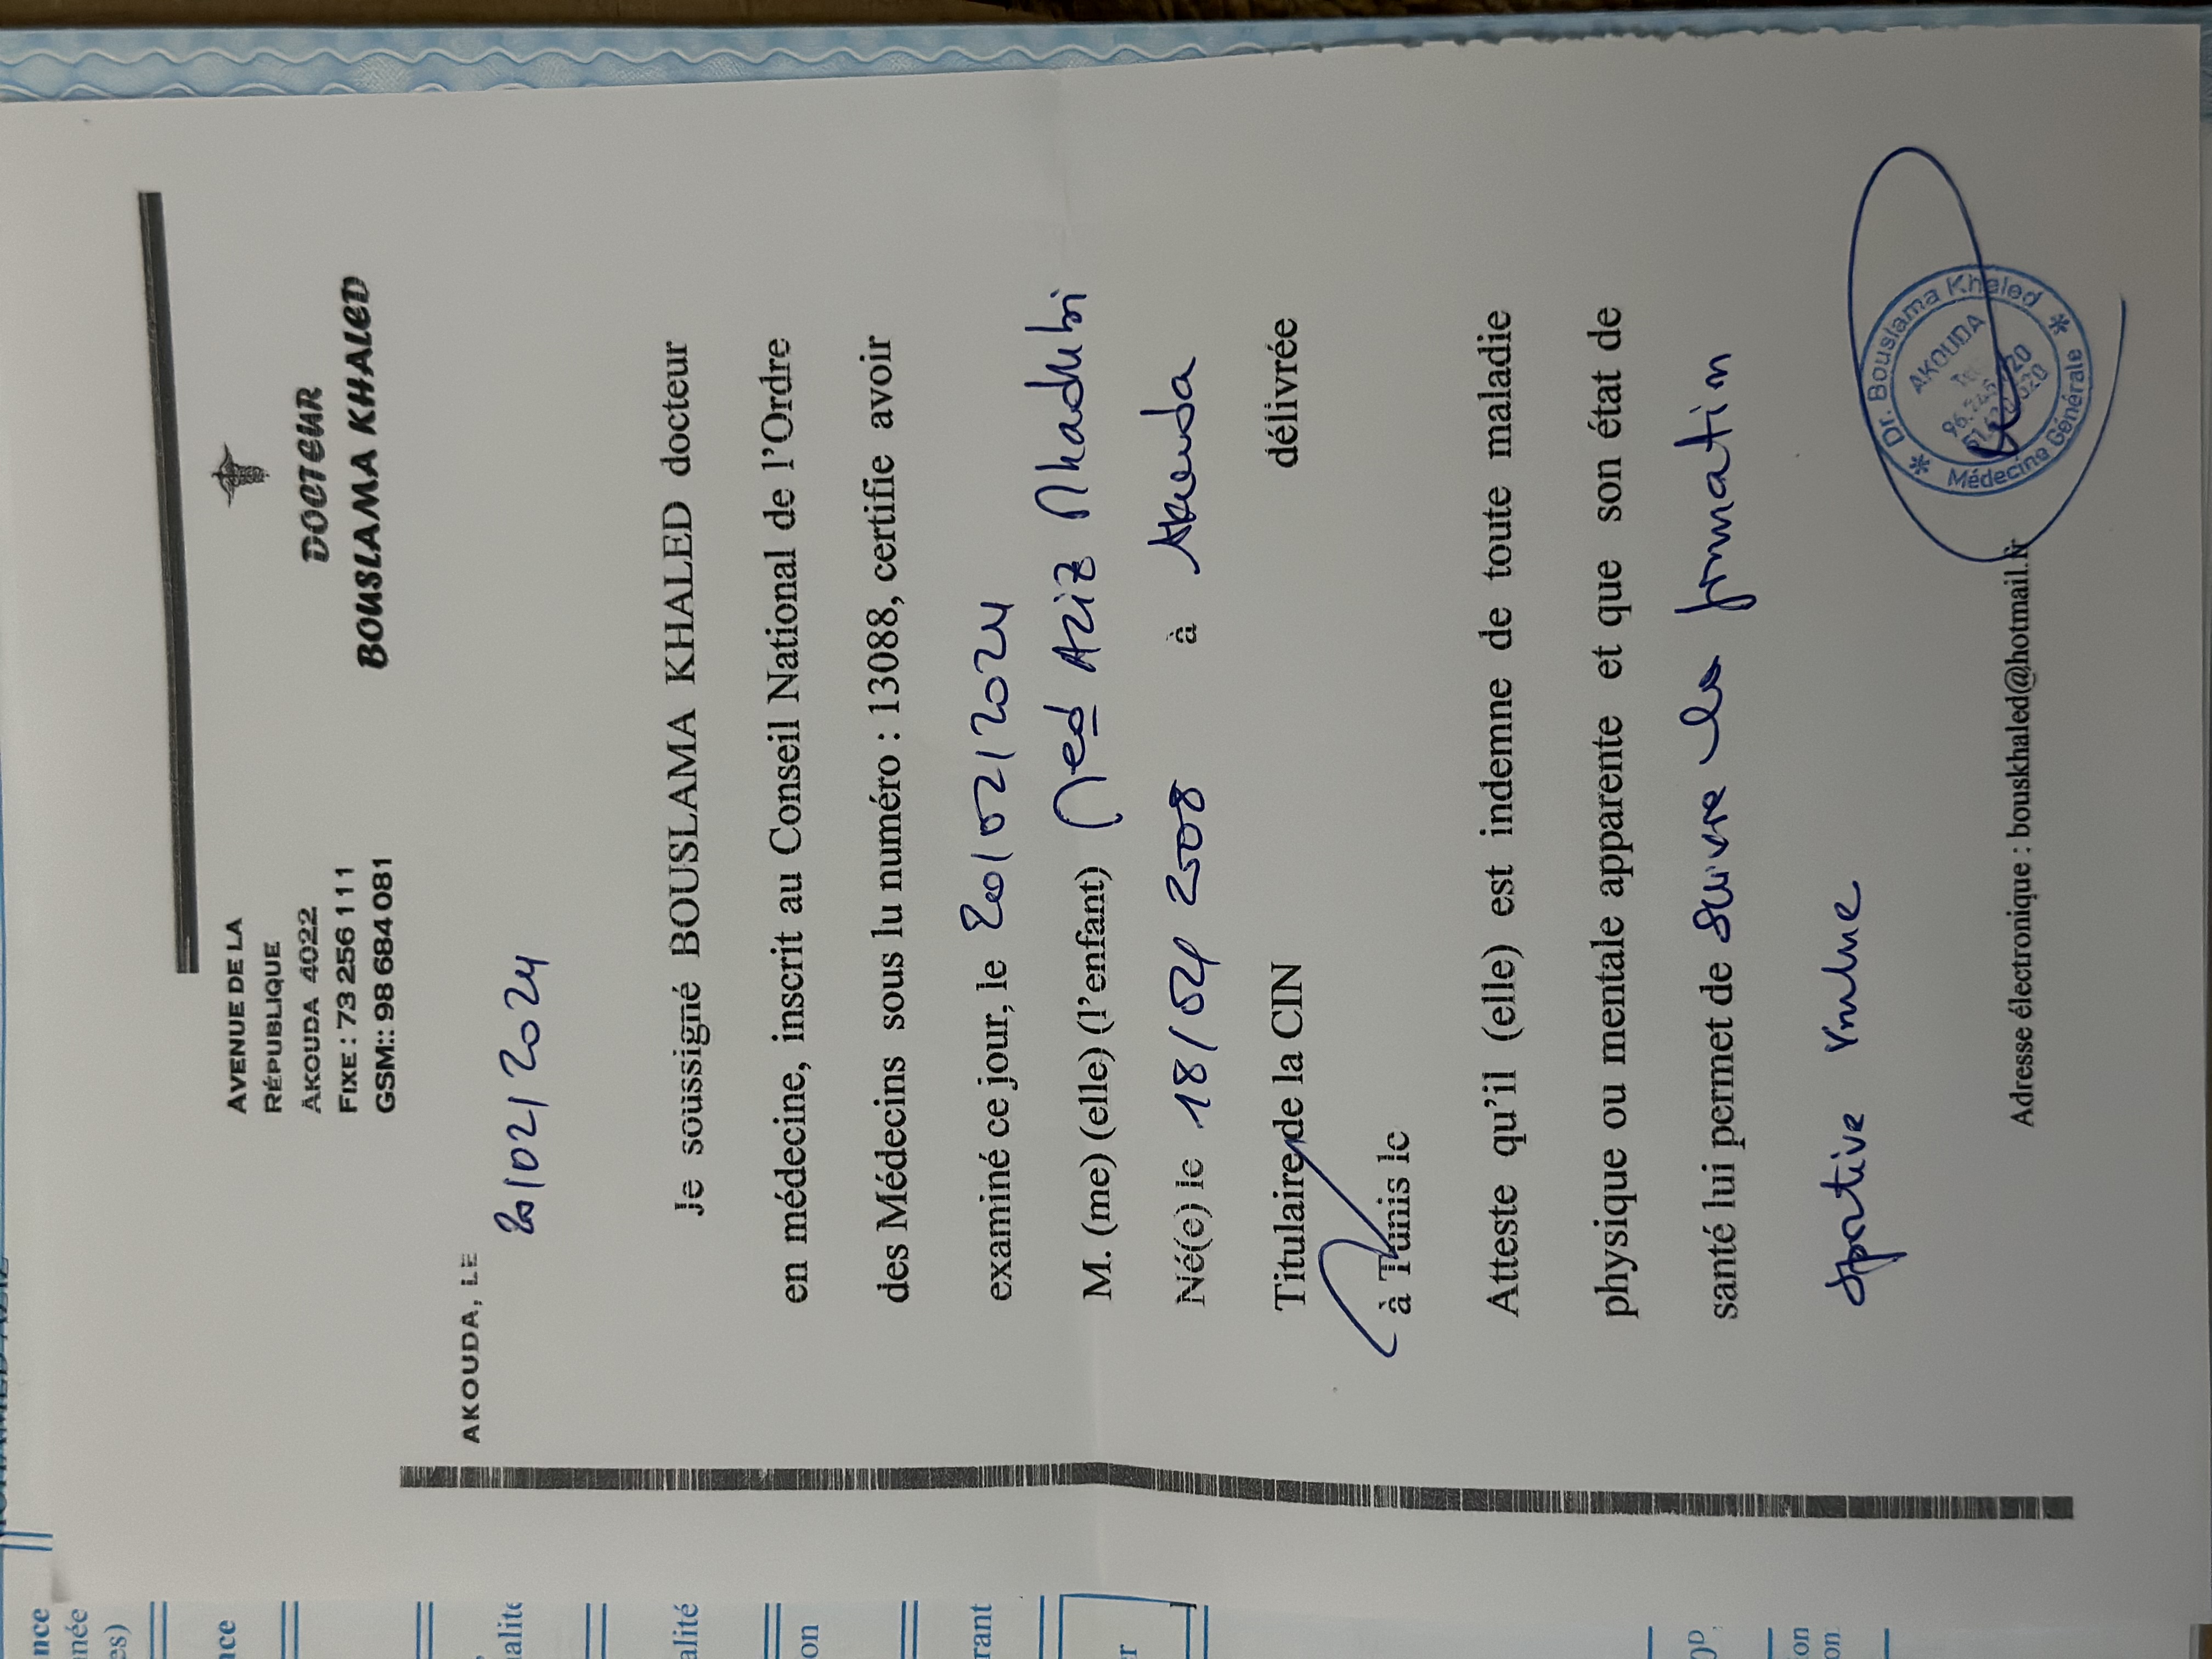 AVENUE DE LA
RÉPUBLIQUE
AKOUDA 4022
FIXE : 73 256 111
GSM:: 98 684 081
DOCTEUR
BOUSLAMA KHALED
AKOUDA, LE
20/02/2024
Je soussigné BOUSLAMA KHALED docteur
en médecine, inscrit au Conseil National de l'Ordre
des Médecins sous lu numéro : 13088, certifie avoir
examiné ce jour, le 20/02/2024
M. (me) (elle) (l'enfant) Med Aziz
Né(e) le 18/04/2008 à Akouda
Titulaire de la CIN délivrée
à Tunis le
Atteste qu'il (elle) est indemne de toute maladie
physique ou mentale apparente et que son état de
santé lui permet de suivre la formation
sportive
Dr. Bouslama Khaled
AKOUDA
Médecine Générale
Adresse électronique : bouskhaled@hotmail.fr
nce
née
es)
nce
alité
alité
on
rant
r
on
on